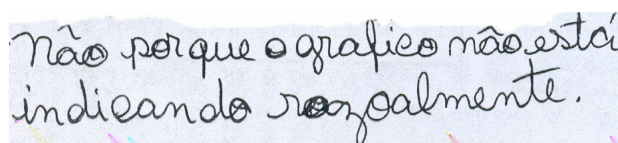 Não porque o grafico não está
indicando razoalmente.